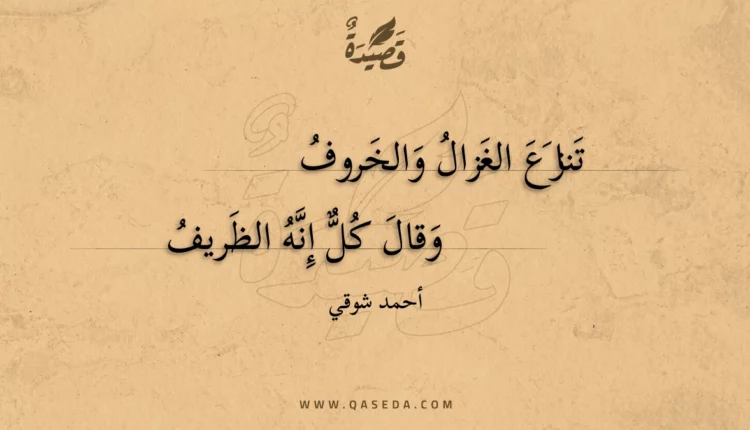 قَصِيْدَةٌ
تَنازَعَ الغَزالُ وَالخَروفُ
وَقالَ كُلٌّ إِنَّهُ الظَريفُ
أحمد شوقي
WWW.QASEDA.COM